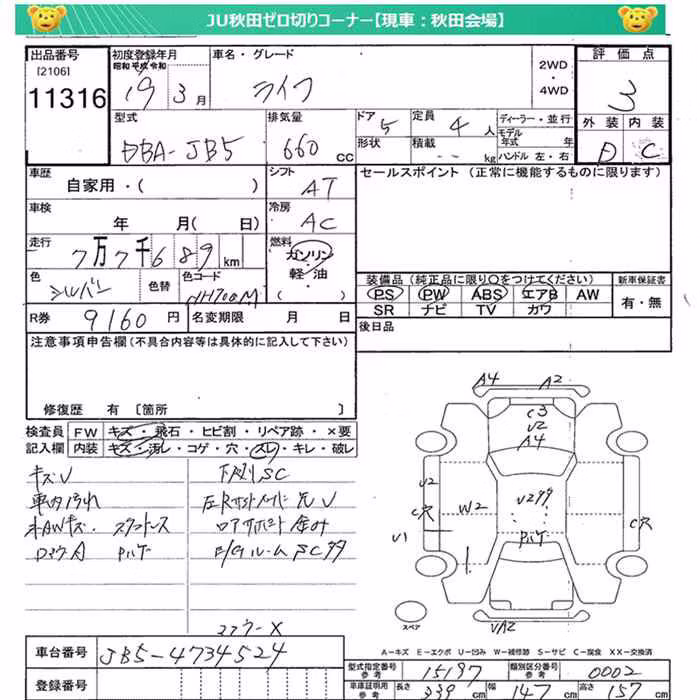 JU秋田ゼロ切りコーナー【現車：秋田会場】
出品番号 [2106] 11316
初度登録年月 昭和 平成 令和 19 3月
車名・グレード ライフ
2WD ・ 4WD
評価点 3
外装 内装 D C
型式 DBA-JB5
排気量 660 cc
ドア 形状 5
定員 4人
積載 -- kg
ディーラー・並行
モデル 年式 年
ハンドル 左・右
車歴 自家用・( )
シフト AT
セールスポイント (正常に機能するものに限ります)
車検 年 月( 日)
冷房 AC
走行 7万7千689 km
燃料 ガソリン ・ 軽油
色 シルバー
色替
色コード NH700M
装備品 (純正品に限り○をつけてください)
新車保証書 有・無
PS PW ABS エアB AW
SR ナビ TV カワ
R券 9160 円
名変期限 月 日
後日品
注意事項申告欄(不具合内容等は具体的に記入して下さい)
修復歴 有 [箇所 ]
検査員 記入欄
FW キズ・飛石・ヒビ割・リペア跡・×要
内装 キズ・汚レ・コゲ・穴・スレ・キレ・破レ
キズU
車内汚れ
下廻りSC
A4 A2
C3
U2
A4
U2
C穴
U1
W2
C穴
UA2
スペア
コアラーX
A－キズ E－エクボ U－凹み W－補修跡 S－サビ C－腐食 XX－交換済
車台番号 JB5-4734524
登録番号
型式指定番号 参考 15197
類別区分番号 参考 0002
車庫証明用 参考 長さ 339 cm 幅 147 cm 高さ 157 cm